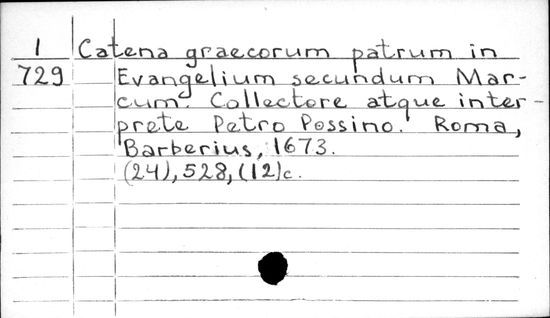 1 Catena graecorum patrum in
729 Evangelium secundum Mar-
cum. Collectore atque inter-
prete Petro Possino. Roma,
Barberius, 1673.
(24), 528, (12)c.